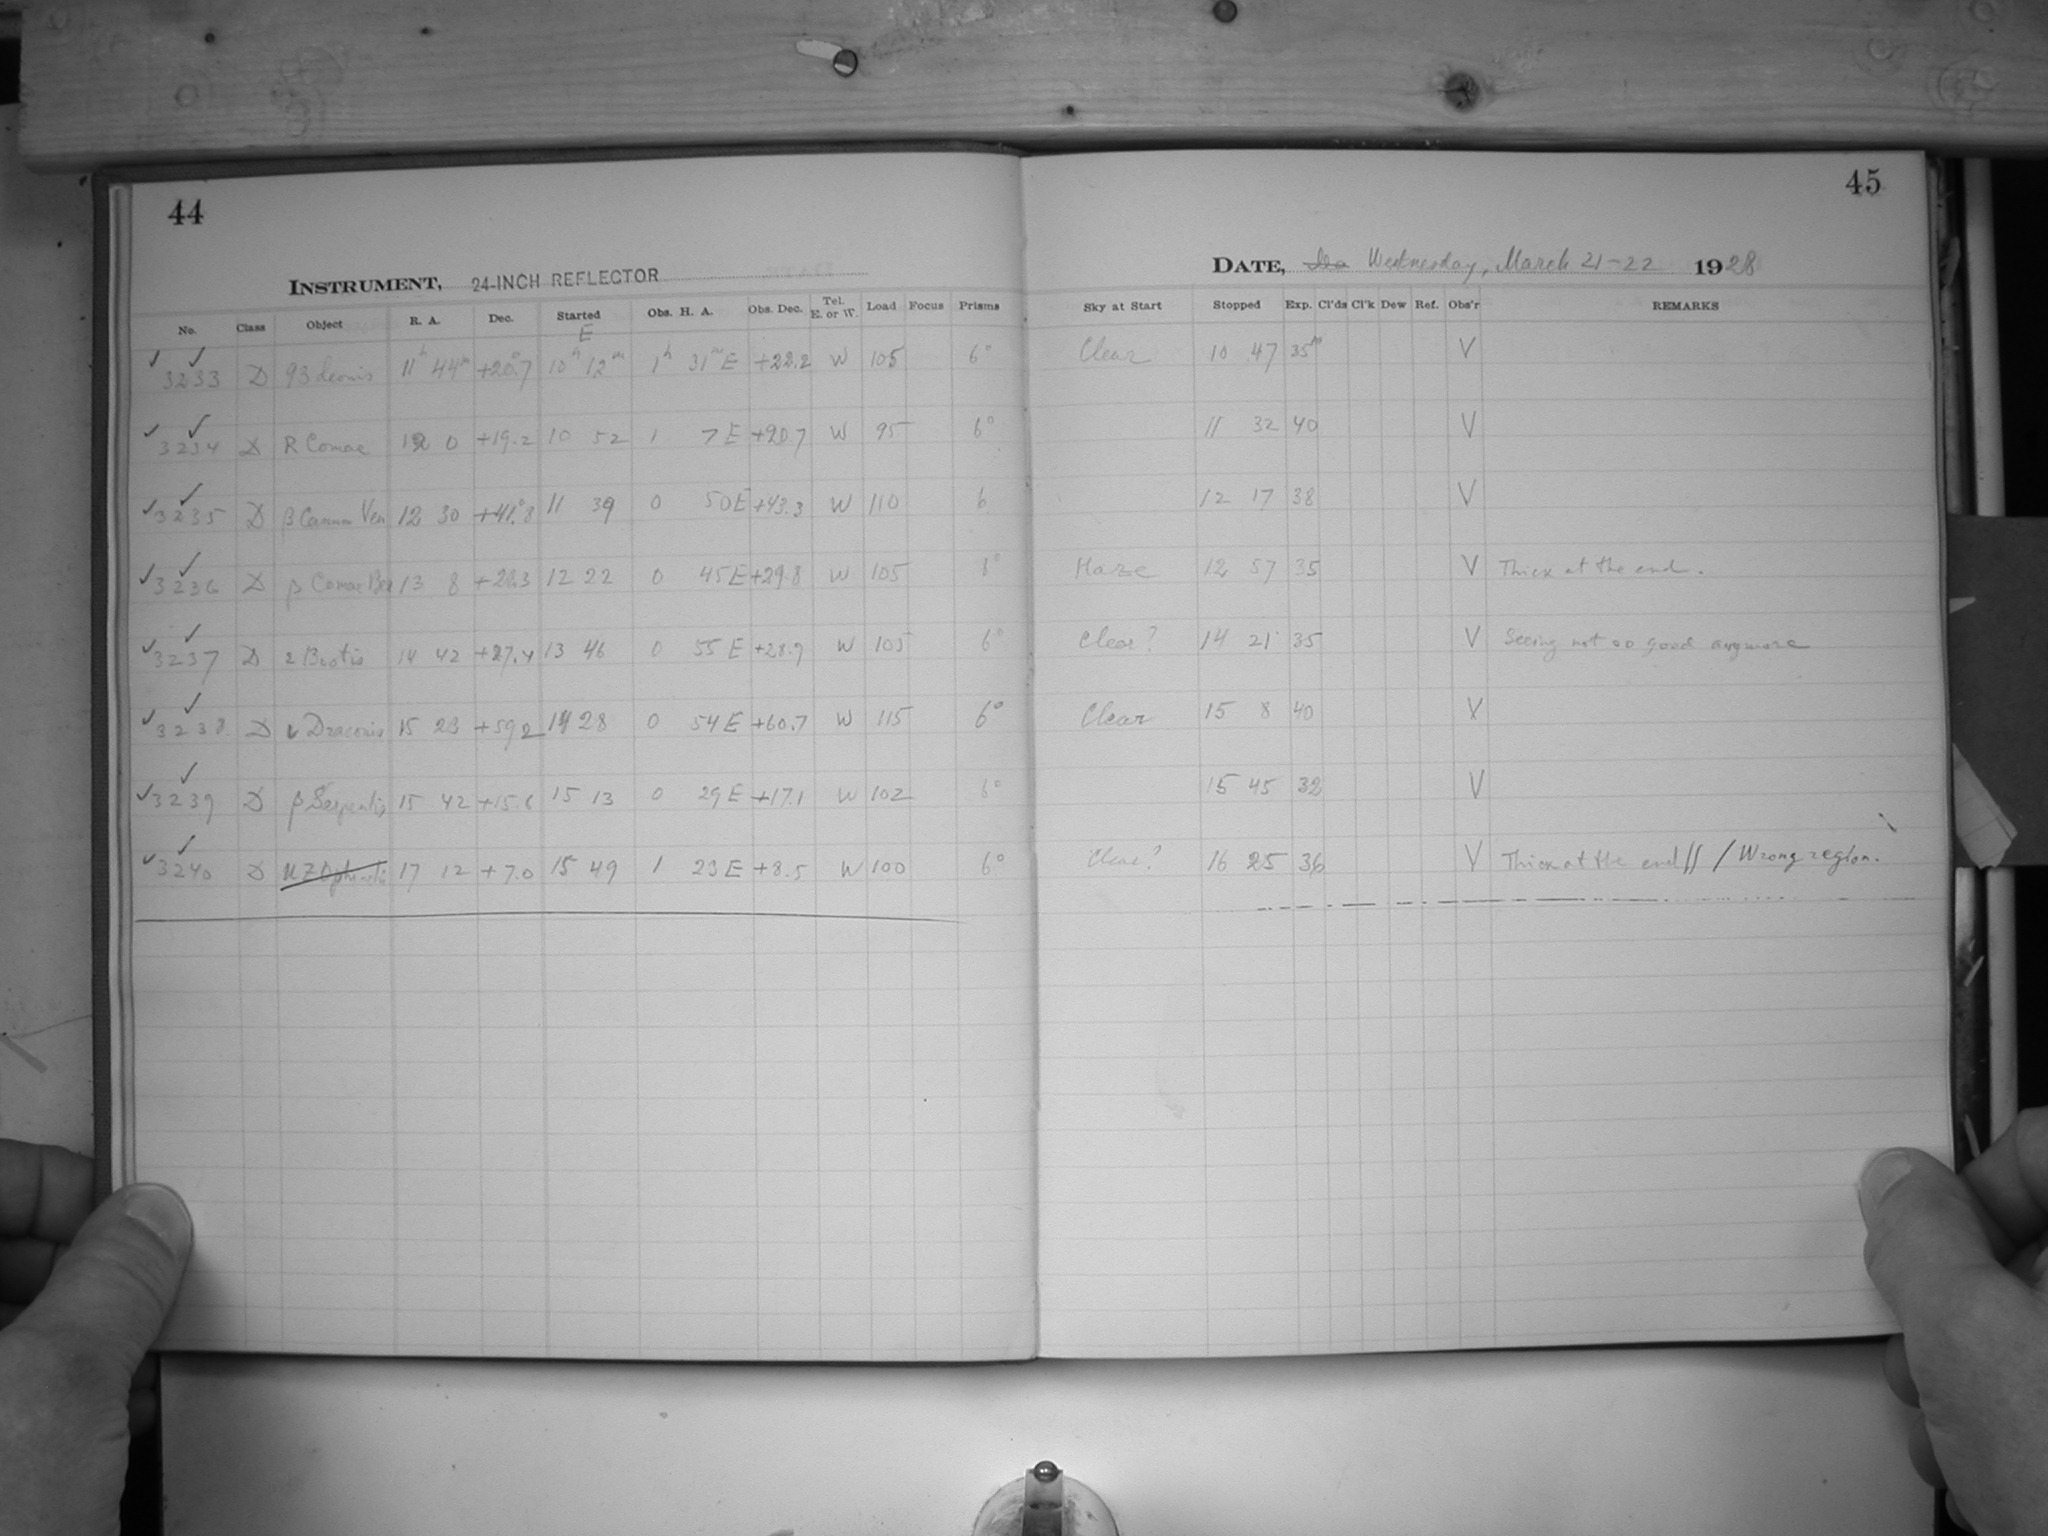 44
INSTRUMENT, 24-INCH REFLECTOR
No. Class Object R. A. Dec. Started Obs. H. A. Obs. Dec. Tel. E. or W. Load Focus Prisms
E
✓ ✓ 3233 D 93 Leonis 11h 44m +20°.7 10h 12m 1h 31m E +22.2 W 105 6°
✓ ✓ 3234 D R Comae 12 0 +19.2 10 52 1 7 E +20.7 W 95 6°
✓ ✓ 3235 D β Canum Ven 12 30 +41°.8 11 39 0 50 E +43.3 W 110 6
✓ ✓ 3236 D β Comae Ber 13 8 +28.3 12 22 0 45 E +29.8 W 105 6°
✓ ✓ 3237 D ε Bootis 14 42 +27.4 13 46 0 55 E +28.9 W 105 6°
✓ ✓ 3238 D ι Draconis 15 23 +59.2 14 28 0 54 E +60.7 W 115 6°
✓ ✓ 3239 D β Serpentis 15 42 +15.6 15 13 0 29 E +17.1 W 102 6°
✓ ✓ 3240 D 17 12 +7.0 15 49 1 23 E +8.5 W 100 6°
45
DATE, Wednesday, March 21-22 1928
Sky at Start Stopped Exp. Cl'ds Cl'k Dew Ref. Obs'r REMARKS
Clear 10 47 35m V
11 32 40 V
12 17 38 V
Haze 12 57 35 V Thick at the end.
Clear? 14 21 35 V Seeing not so good anymore
Clear 15 8 40 V
15 45 32 V
Clear? 16 25 36 V Thick at the end // / Wrong region.